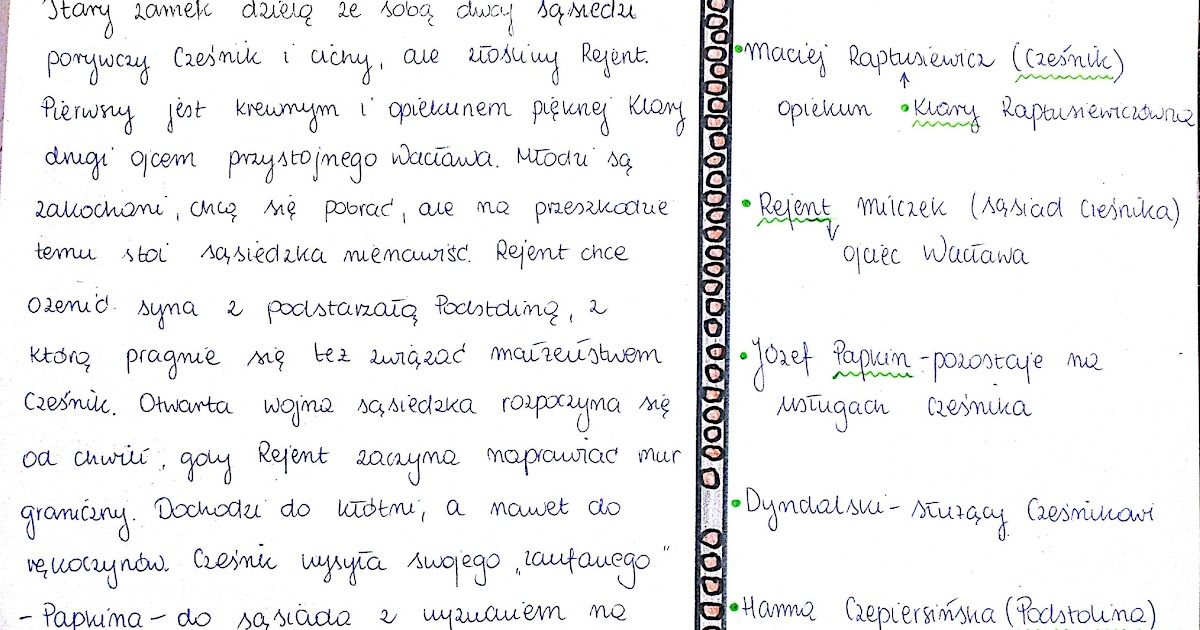 Stary zamek dzielą ze sobą dwaj sąsiedzi
porywczy Cześnik i cichy, ale złośliwy Rejent.
Pierwszy jest krewnym i opiekunem pięknej Klary
drugi ojcem przystojnego Wacława. Młodzi są
zakochani, chcą się pobrać, ale na przeszkodzie
temu stoi sąsiedzka nienawiść. Rejent chce
ożenić syna z podstarzałą Podstoliną, z
którą pragnie się też związać małżeństwem
Cześnik. Otwarta wojna sąsiedzka rozpoczyna się
od chwili, gdy Rejent zaczyna naprawiać mur
graniczny. Dochodzi do kłótni, a nawet do
rękoczynów. Cześnik wysyła swojego „zaufanego"
- Papkina - do sąsiada z wyzwaniem na
• Maciej Raptusiewicz (Cześnik)
↑
opiekun • Klary Raptusiewiczówna
• Rejent Milczek (sąsiad Cześnika)
↓
ojciec Wacława
• Józef Papkin - pozostaje na
usługach Cześnika
• Dyndalski - służący Cześnikowi
• Hanna Czepiersińska (Podstolina)